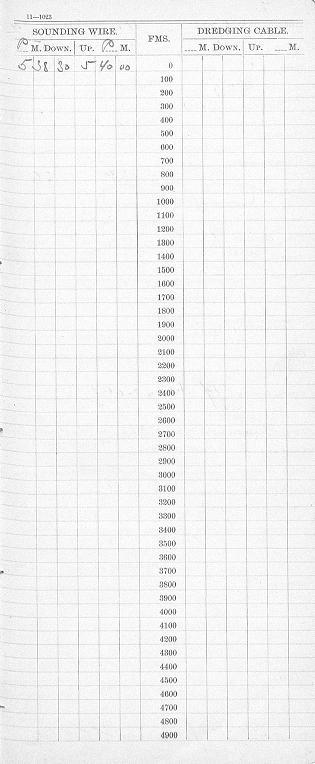 11—1023
SOUNDING WIRE. FMS. DREDGING CABLE.
P M. DOWN. UP. P M. .... M. DOWN. UP. .... M.
5 38 30 5 40 00 0
100
200
300
400
500
600
700
800
900
1000
1100
1200
1300
1400
1500
1600
1700
1800
1900
2000
2100
2200
2300
2400
2500
2600
2700
2800
2900
3000
3100
3200
3300
3400
3500
3600
3700
3800
3900
4000
4100
4200
4300
4400
4500
4600
4700
4800
4900